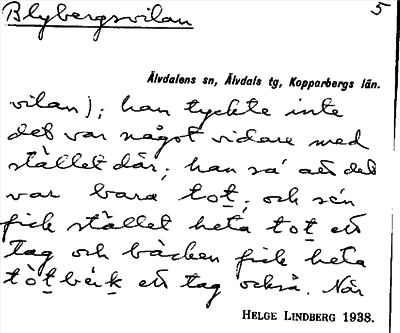 Blybergsvilan 5
Älvdalens sn, Älvdals tg, Kopparbergs län.
vilan); han tyckte inte
det var något vidare med
stället där; han sa' att det
var bara tot; och sén
fick stället heta tot ett
tag och bäcken fick heta
tòtbèik ett tag också. När
HELGE LINDBERG 1938.